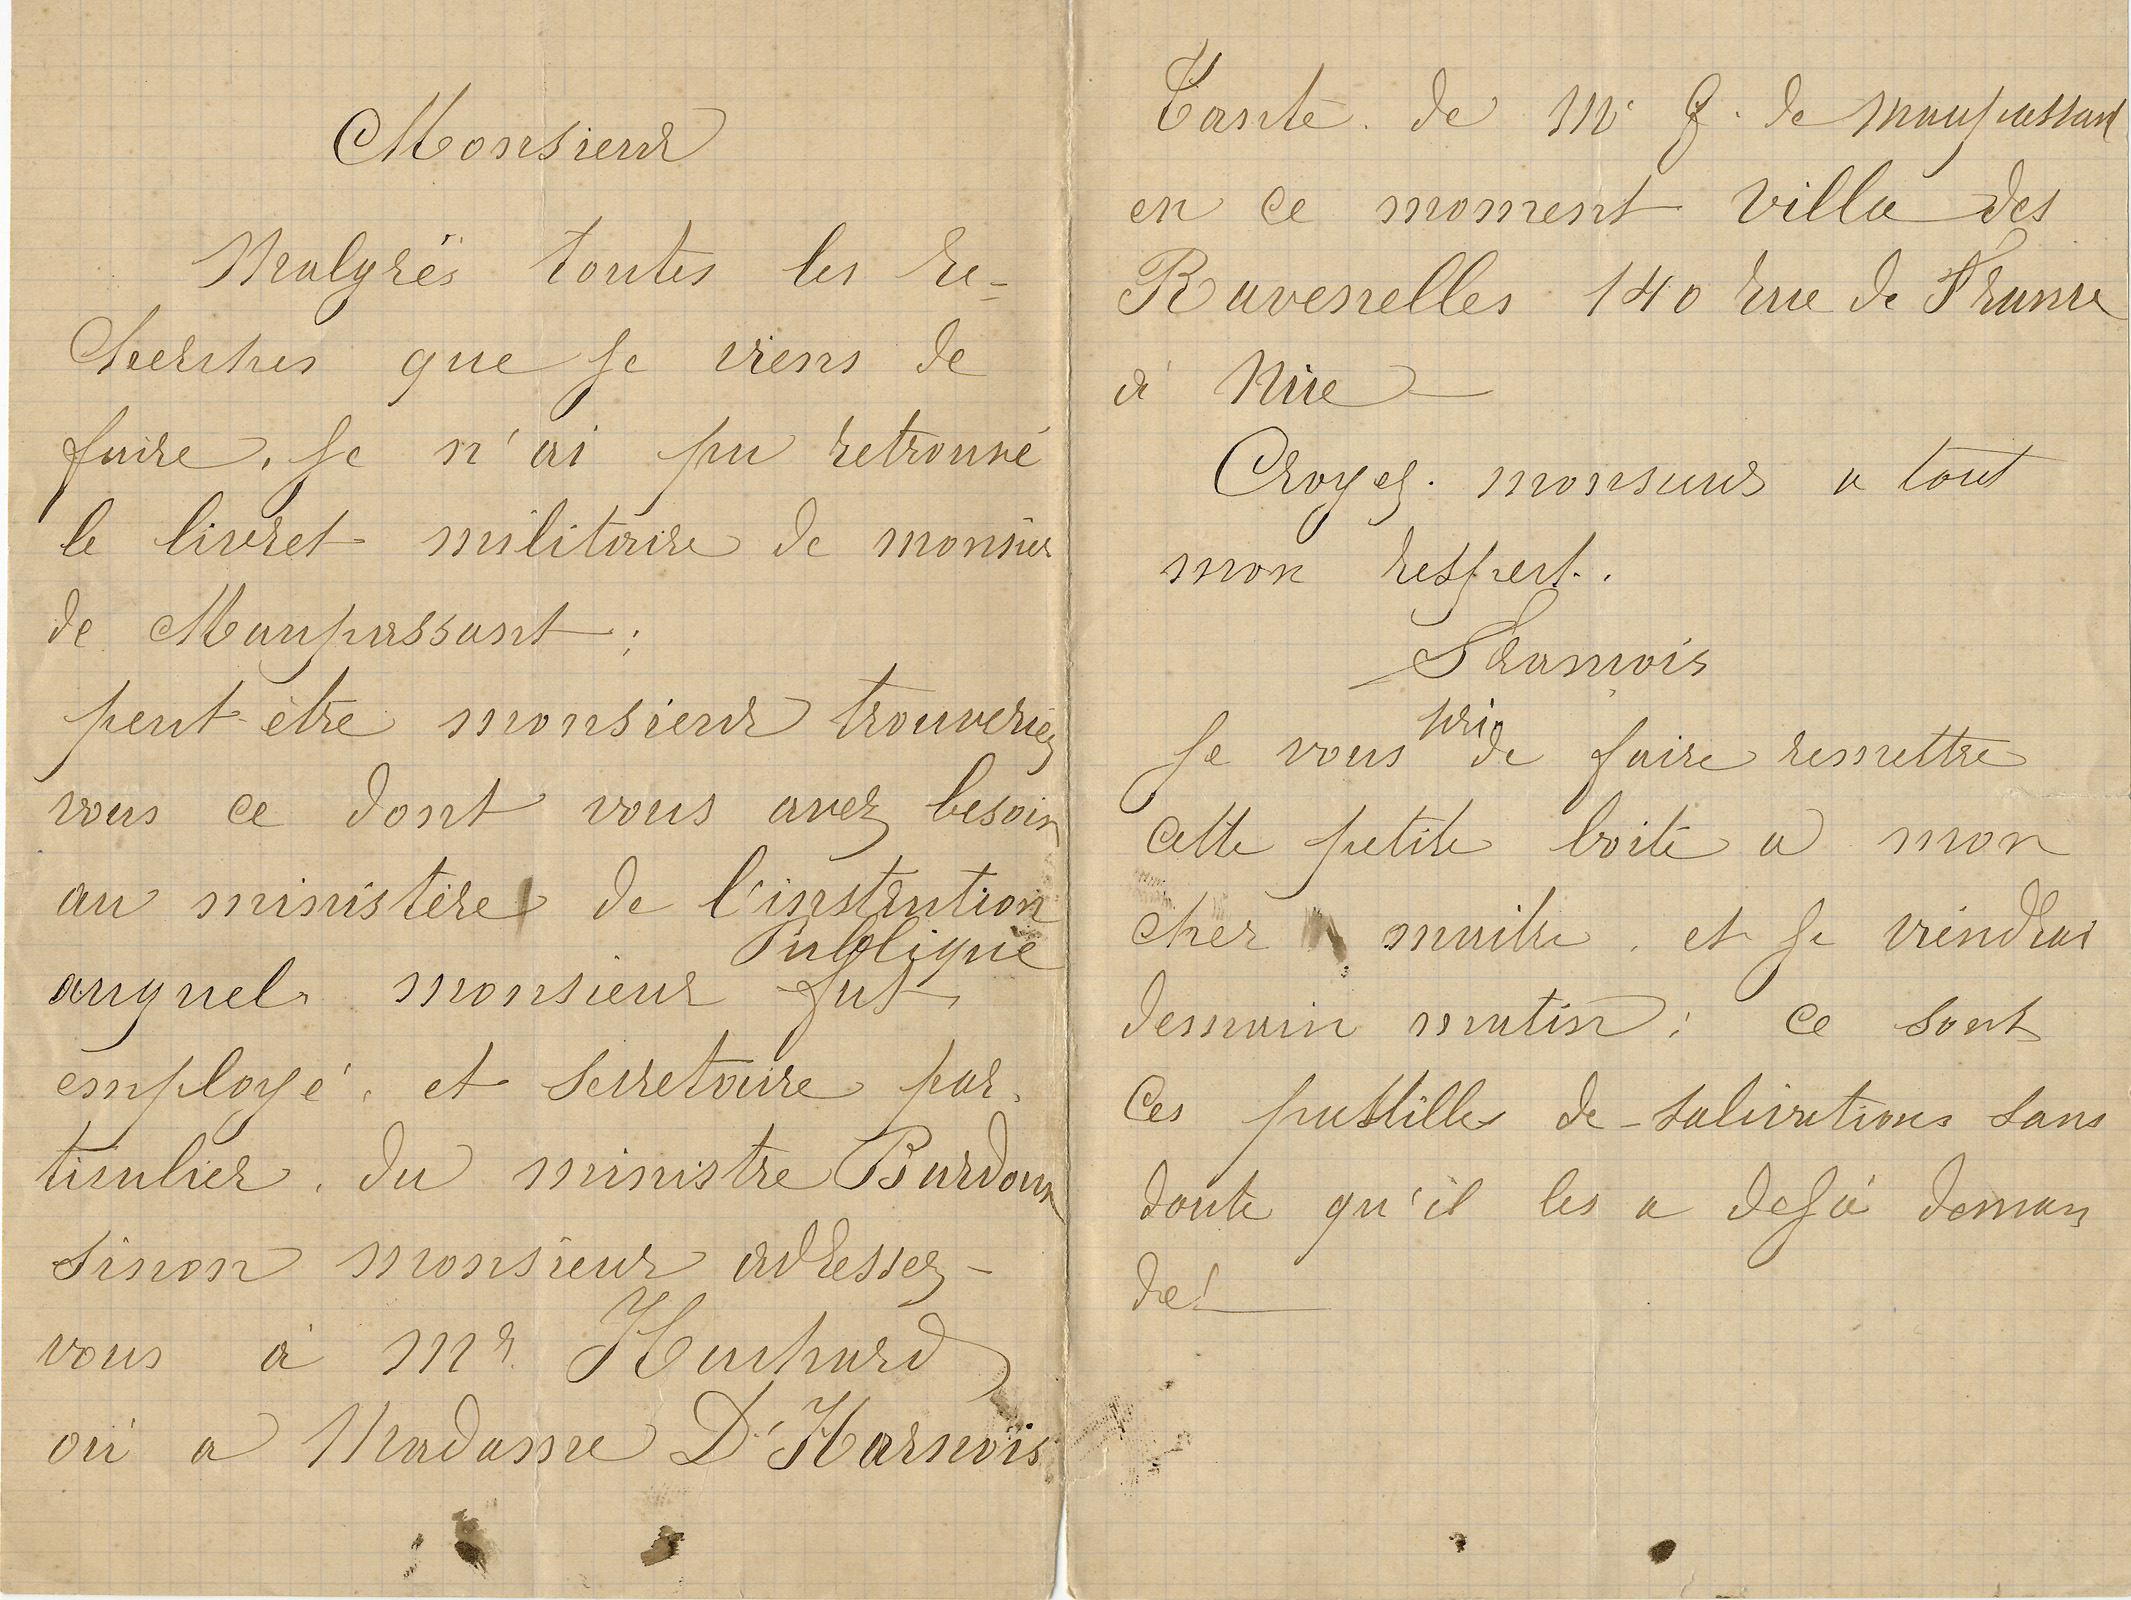 Monsieur
Malgrés toutes les re-
cherches que je viens de
faire, je n'ai pu retrouvé
le livret militaire de monsieur
de Maupassant ;
peut-être monsieur trouveriez
vous ce dont vous avez besoin
au ministère de l'instruction
Publique
auquel monsieur fut
employé, et secretaire par
ticulier, du ministre Bardoux
sinon monsieur adressez-
vous à Mr. Huchard
où a Madame D'Harnois
Tante de Mr G. de Maupassant
en ce moment villa des
Ravenelles 140 rue de France
à Nice
Croyez monsieur a tout
mon respect.
François
Je vous pri de faire remettre
cette petite boite a mon
cher maitre, et je viendrai
demain matin ; ce sont
ces pastilles de salivations sans
doute qu'il les a dejà deman
dé